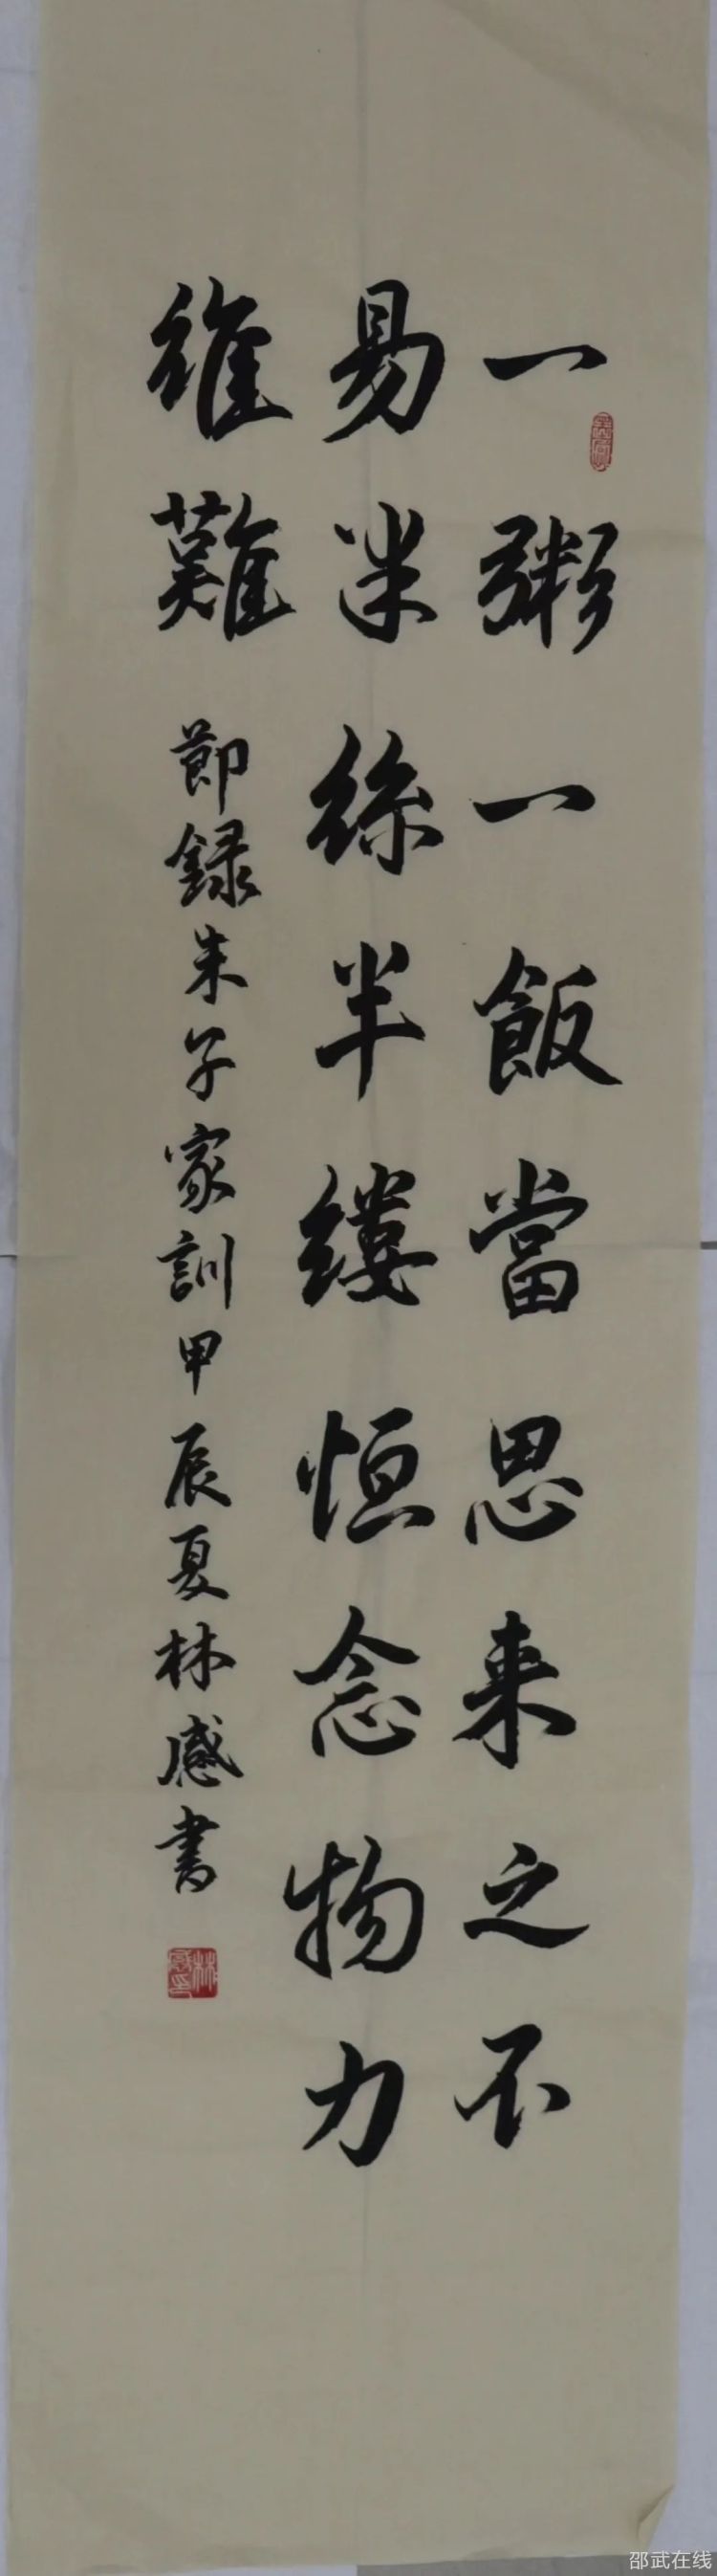 一粥一飯當思来之不
易半絲半縷恒念物力
維難 節録朱子家訓甲辰夏林感書
林感印
邵武在线